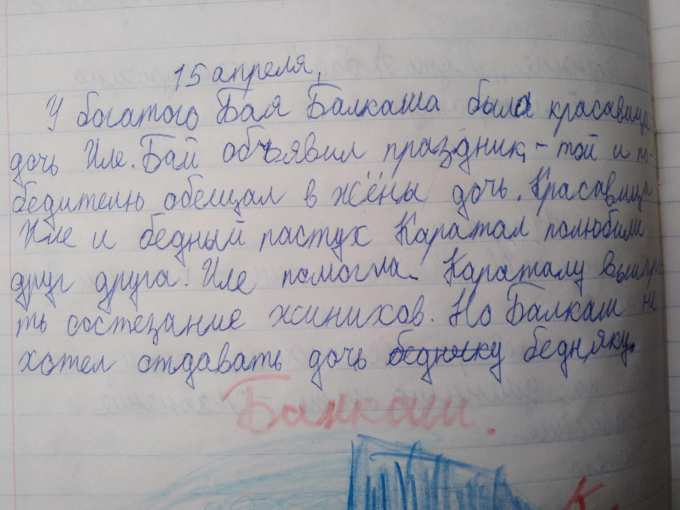 15 апреля,
У богатого Бая Балкаша была красавица
дочь Иле. Бай объявил праздник, - той и по-
бедителю обещал в жёны дочь. Красавица
Иле и бедный пастух Каратал полюбили
друг друга. Иле помогла Караталу выигра
ть состезание жинихов. Но Балкаш не
хотел отдавать дочь бедняку бедняку.
Балкаш.
К